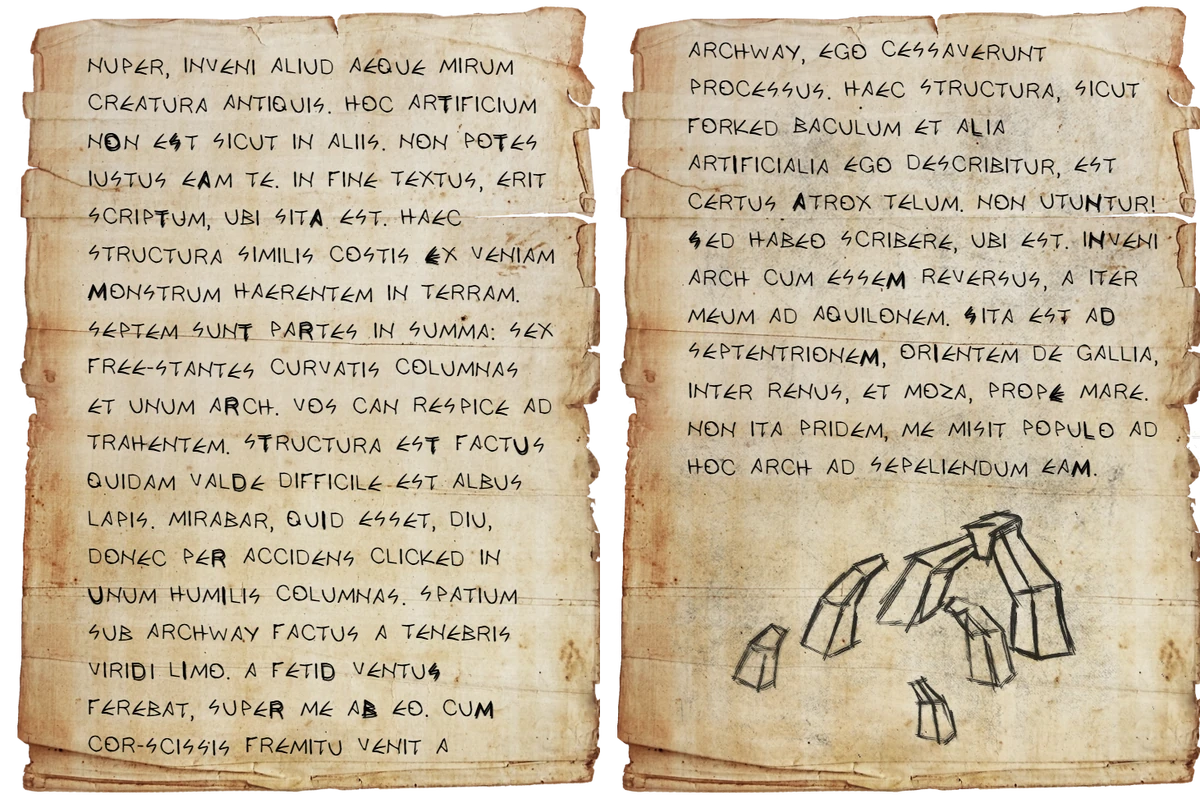 NUPER, INVENI ALIUD AEQUE MIRUM
CREATURA ANTIQUIS. HOC ARTIFICIUM
NON EST SICUT IN ALIIS. NON POTES
IUSTUS EAM TE. IN FINE TEXTUS, ERIT
SCRIPTUM, UBI SITA EST. HAEC
STRUCTURA SIMILIS COSTIS EX VENIAM
MONSTRUM HAERENTEM IN TERRAM.
SEPTEM SUNT PARTES IN SUMMA: SEX
FREE-STANTES CURVATIS COLUMNAS
ET UNUM ARCH. VOS CAN RESPICE AD
TRAHENTEM. STRUCTURA EST FACTUS
QUIDAM VALDE DIFFICILE EST ALBUS
LAPIS. MIRABAR, QUID ESSET, DIU,
DONEC PER ACCIDENS CLICKED IN
UNUM HUMILIS COLUMNAS. SPATIUM
SUB ARCHWAY FACTUS A TENEBRIS
VIRIDI LIMO. A FETID VENTUS
FEREBAT, SUPER ME AB EO. CUM
COR-SCISSIS FREMITU VENIT A
ARCHWAY, EGO CESSAVERUNT
PROCESSUS. HAEC STRUCTURA, SICUT
FORKED BACULUM ET ALIA
ARTIFICIALIA EGO DESCRIBITUR, EST
CERTUS ATROX TELUM. NON UTUNTUR!
SED HABEO SCRIBERE, UBI EST. INVENI
ARCH CUM ESSEM REVERSUS, A ITER
MEUM AD AQUILONEM. SITA EST AD
SEPTENTRIONEM, ORIENTEM DE GALLIA,
INTER RENUS, ET MOZA, PROPE MARE.
NON ITA PRIDEM, ME MISIT POPULO AD
HOC ARCH AD SEPELIENDUM EAM.